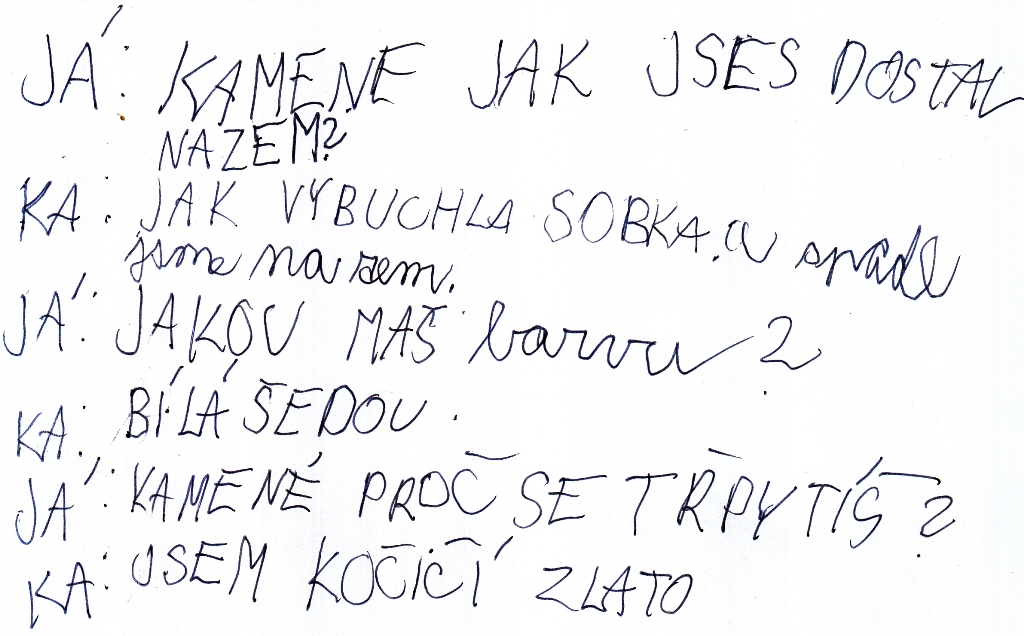 JÁ: KAMENE JAK JSES DOSTAL
NAZEM?
KA: JAK VYBUCHLA SOBKA. a spadl
jsme na zem.
JÁ: JAKOU MAŠ barvu?
KA: BÍLÁ ŠEDOU.
JÁ: KAMENÉ PROČ SE TŘPYTÍŠ?
KA: JSEM KOČIČÍ ZLATO